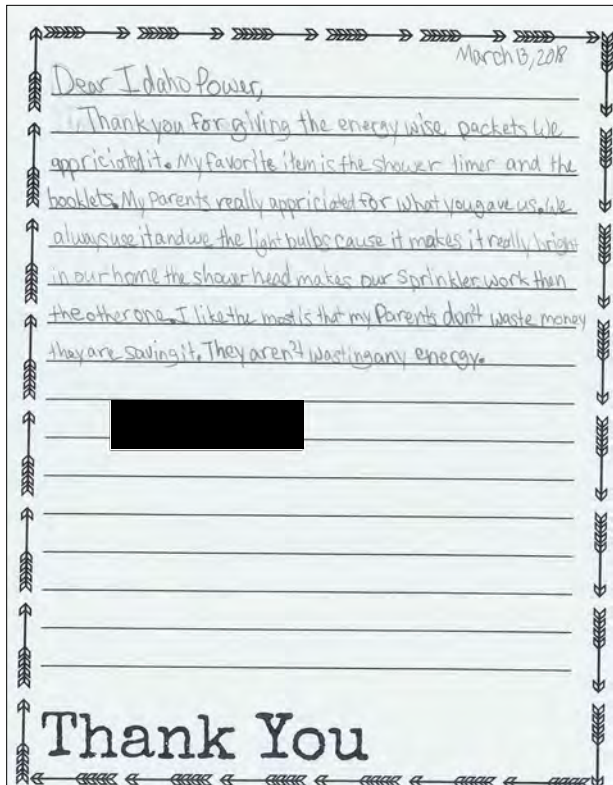 March 13, 2018
Dear Idaho Power,
Thank you for giving the energy wise packets We
appriciated it. My favorite item is the shower timer and the
booklets. My Parents really appriciated for what you gave us. We
always use it and we the light bulbs cause it makes it really bright
in our home the shower head makes our Sprinkler work then
the other one. I like the most is that my Parents don't waste money
they are saving it. They aren't wasting any energy.
Thank You